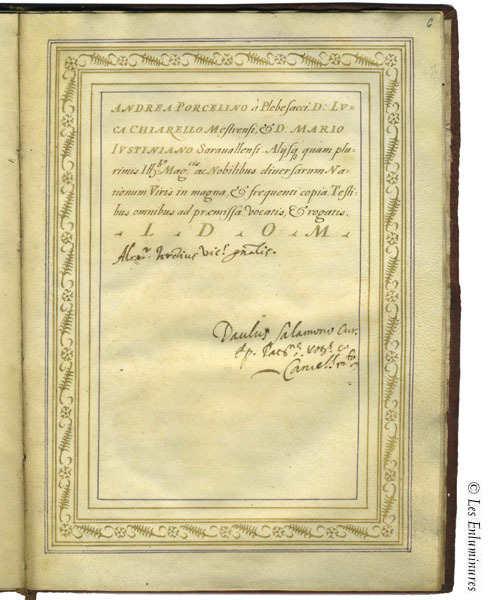 6
ANDREA PORCELINO a Plebesacci. D: LV=
CA CHIARELLO Mestrensi, & D. MARIO
IVSTINIANO Sarauallensi. Alysq; quam plu=
rimis Ill.ribus Mag.cis ac Nobilibus diuersarum Na=
tionum Viris in magna, & frequenti copia. Testi=
bus omnibus ad præmissa vocatis, & rogatis.
L D O M
Vic.s gnalis.
Paulus Salamono
© Les Enluminures